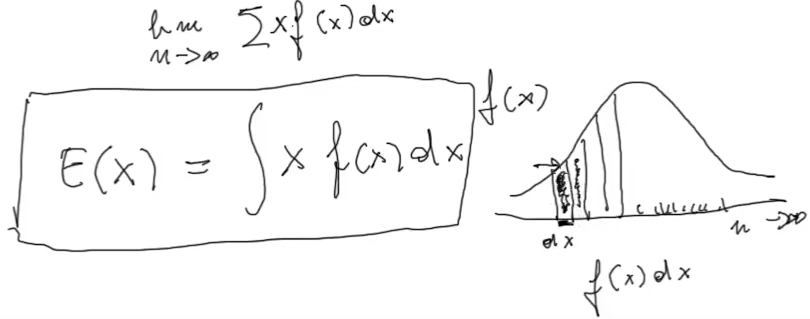 lim ∑ x f(x) dx
n→∞
E(x) = ∫ x f(x) dx
f(x)
dx
n→∞
f(x) dx